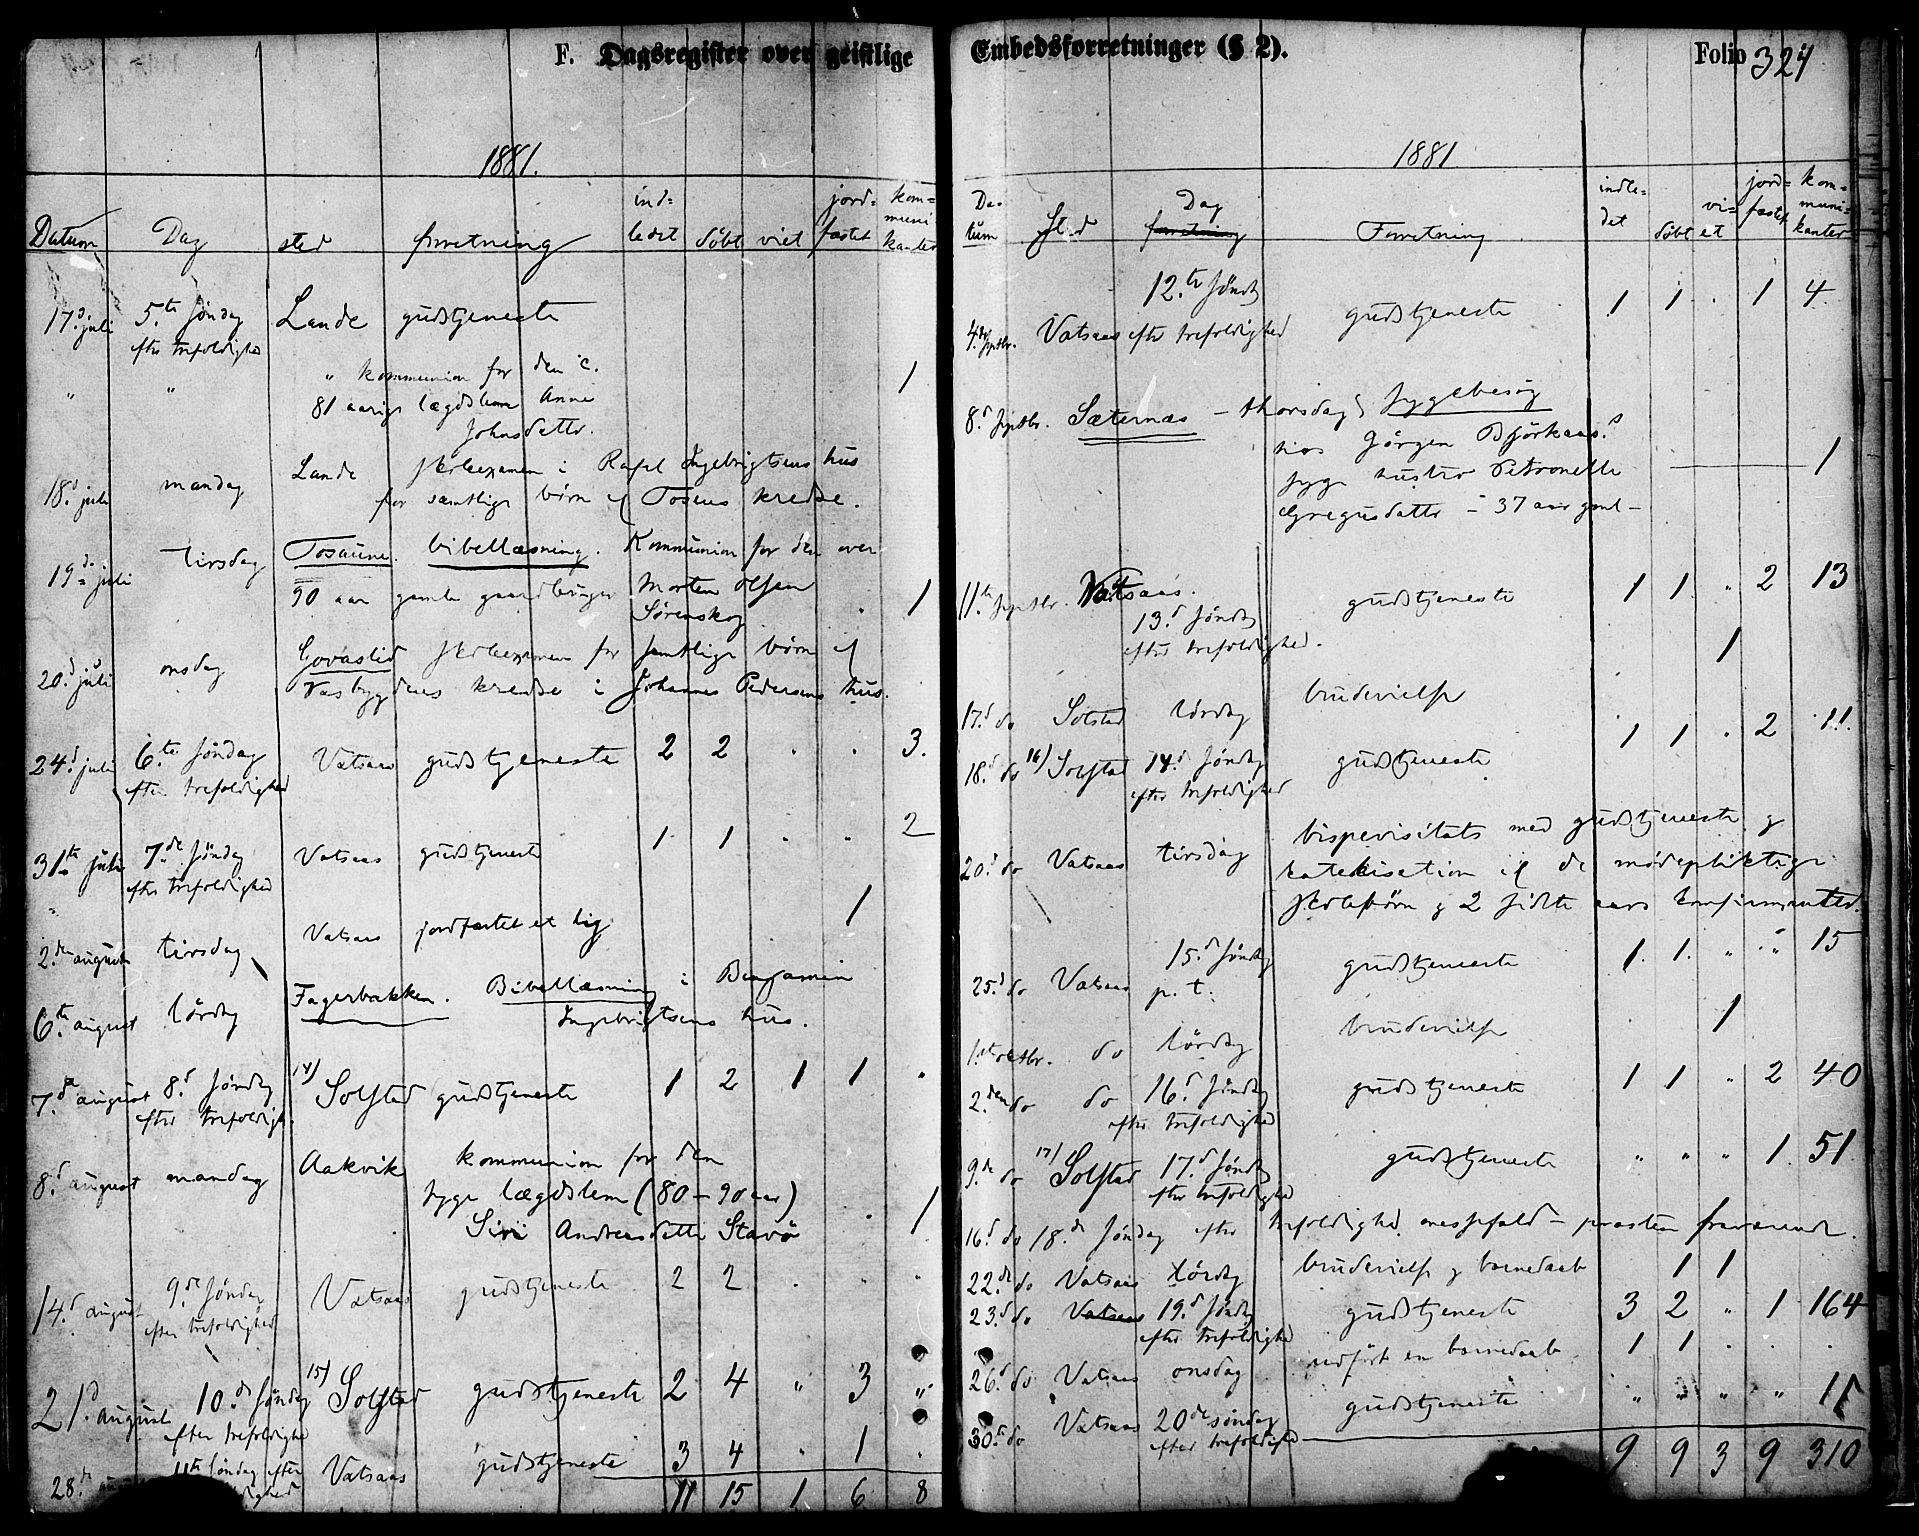 F. Dagsregister over geistlige
1881.
Datum Dag sted forretning ind=ledet døbt viet jord=fæstet kom=munikanter
17.d juli 5.te søndag efter trefoldighed Lande gudstjeneste
" " " kommunion for den c. 1
81 aarige lægdslem Anne
Johnsdattr.
18.d juli mandag Lande skoleexamen i Rafal Ingebrigtsens hus
for samtlige børn af Tosens kredse.
19.de juli tirsdag Tosaune. bibellæsning. Kommunion for den over
90 aar gamle gaardbruger Morten Olsen
Sørenskog " 1
20.d juli onsdag Govaslid skoleexamen for samtlige børn af
Vasbygdens kredse i Johannes Pedersens hus.
24.d juli 6.te søndag efter trefoldighed Vatsaas gudstjeneste 2 2 . . 3.
31.te juli 7.de søndag efter trefoldighed Vatsaas gudstjeneste 1 1 " " 2
2.den august tirsdag Vatsaas jordfæstet et lig 1
6.te august lördag Fagerbakken. Bibellæsning i Benjamin
Ingebrigtsens hus.
7.de august 8.d søndag efter trefoldigh. 14) Solstad gudstjeneste 1 2 1 1 "
8.d august mandag Aakvik kommunion for den
syge lægdslem (80 - 90 aar)
Siri Andreasdattr Stavö . 1
14.d august 9.de søndag efter trefoldighed Vatsaas gudstjeneste 2 2 . " "
21.d august 10.de søndag efter trefoldighe 15) Solstad gudstjeneste 2 4 " 3 "
28.de 11.te søndag efter Vatsaas gudstjeneste 3 4 . 1 .
11 15 1 6 8
Embedsforretninger (§ 2).
Folio 324
1881
Da=tum Sted Dag forretning Forretning indle=det døbt vi=et jord=fæstet kom=muni=kanter
4.de septbr. Vatsaas 12.te søndag efter trefoldighed gudstjeneste 1 1 . 1 4
8.d septbr. Sæternæs - thorsdag sygebesög
hos Jörgen Björkaas.s
syge hustro Petronelle 1
Gregusdattr - 37 aar gml -
11.te septbr. Vatsaas. 13.d søndag efter trefoldighed. gudstjeneste 1 1 " 2 13
17.d do Solstad lördag brudevielse 1
18.d do 16) Solstad 14.d søndag efter trefoldighed gudstjeneste 1 1 " 2 11
20.d do Vatsaas tirsdag bispevisitats med gudstjeneste og
katekisation af de mödepliktige
skolebörn og 2 sidste aars konfirmanter.
25.d do Vatsaas 15.d søndag p. t. gudstjeneste 1 1 " " 15
1.ste oktbr. do lördag brudevielse 1
2.den do do 16.d søndag efter trefoldighed gudstjeneste 1 1 " 2 40
9.de do 17) Solstad 17.d søndag efter trefoldighed gudstjeneste " " " 1 51
16.d do 18.de søndag efter trefoldighed messefald - præsten fraværende.
22.de do Vatsaas lördag brudevielse og barnedaab 1 1
23.d do Vatsaas 19.d søndag efter trefoldighed gudstjeneste 3 2 " 1 164
26.d do Vatsaas onsdag udfört en barnedaab 1 1 . . .
30.te do Vatsaas 20.de søndag efter trefoldighed gudstjeneste " " " " 11
9 9 3 9 310